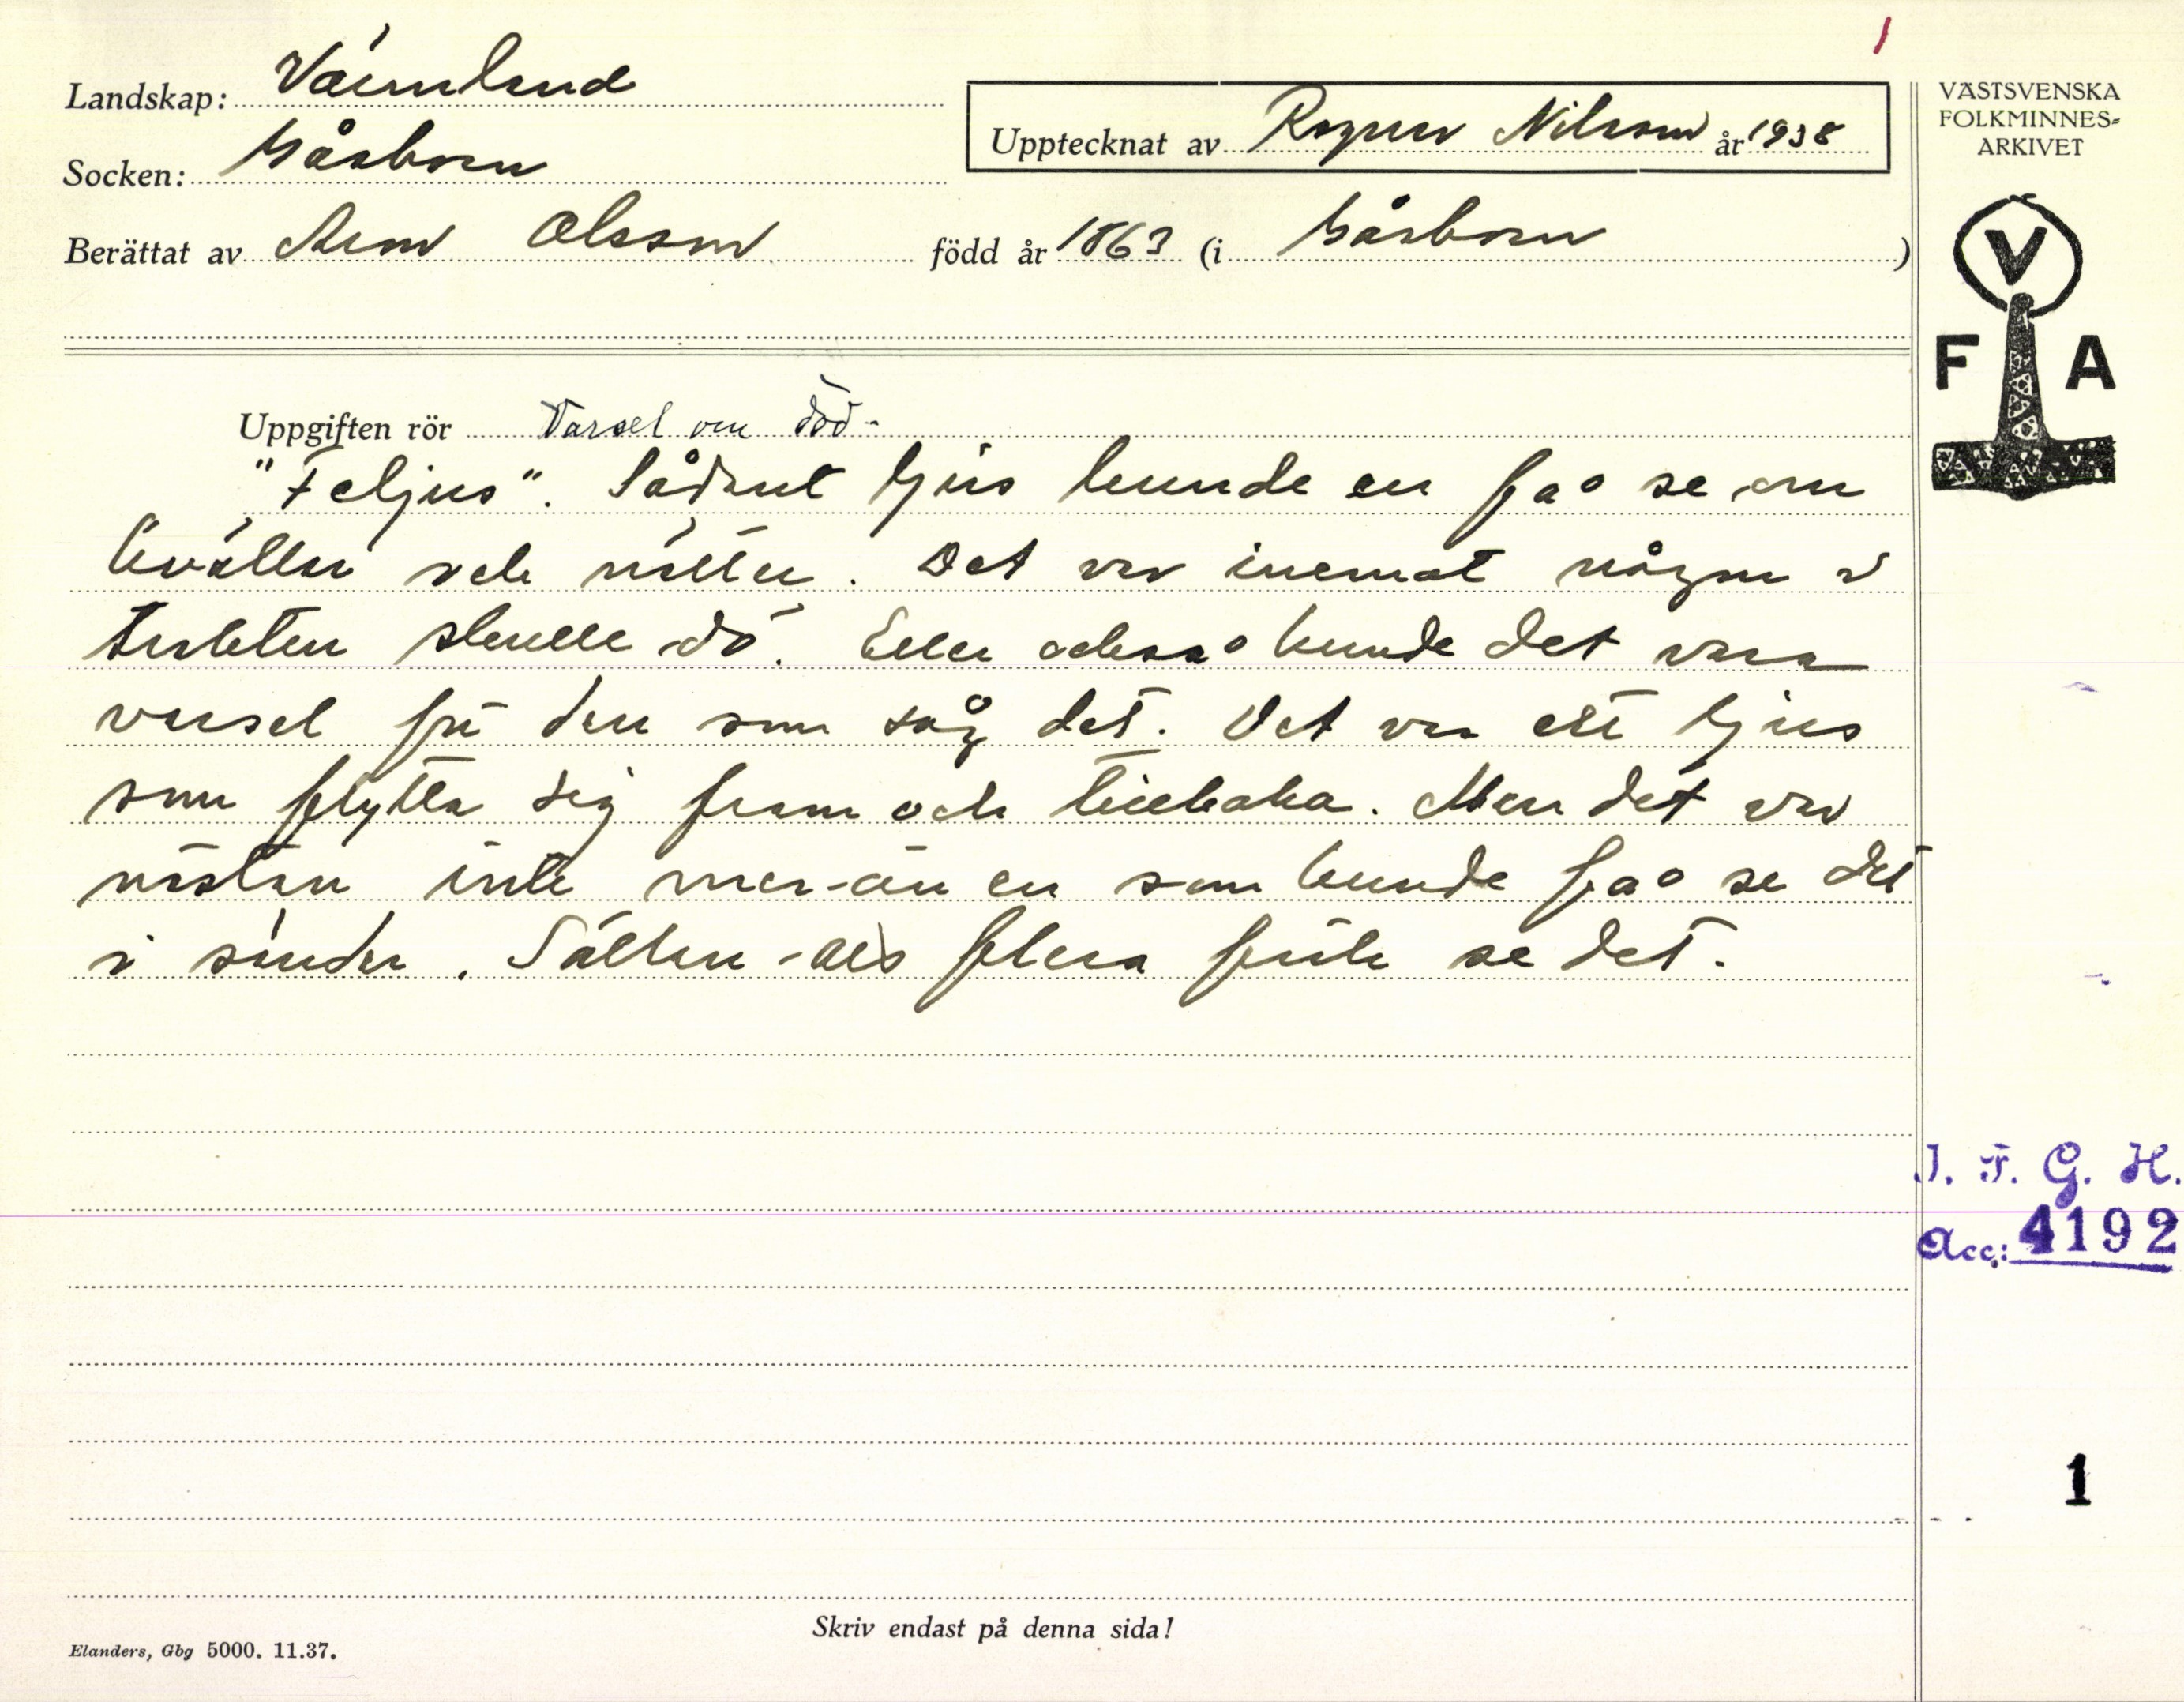 1
Landskap: Värmland
Socken: Gåsborn
Upptecknat av Ragnar Nilsson år 1938
Berättat av Olsson född år 1863 (i Gåsborn)
VÄSTSVENSKA
FOLKMINNES-
ARKIVET
V
F A
Uppgiften rör Varsel om död.
"Feljus". Sådant ljus kunde en få se om
kvällar och nätter. Det var inemot någon i
trakten skulle dö. Eller också kunde det vara
varsel för den som såg det. Det var ett ljus
som flytta sig fram och tillbaka. Men det var
nästan inte mer än en som kunde få se det
i sänder. Sällan als flera fick se det.
I. F. G. H.
Acc: 4192
1
Skriv endast på denna sida!
Elanders, Gbg 5000. 11.37.